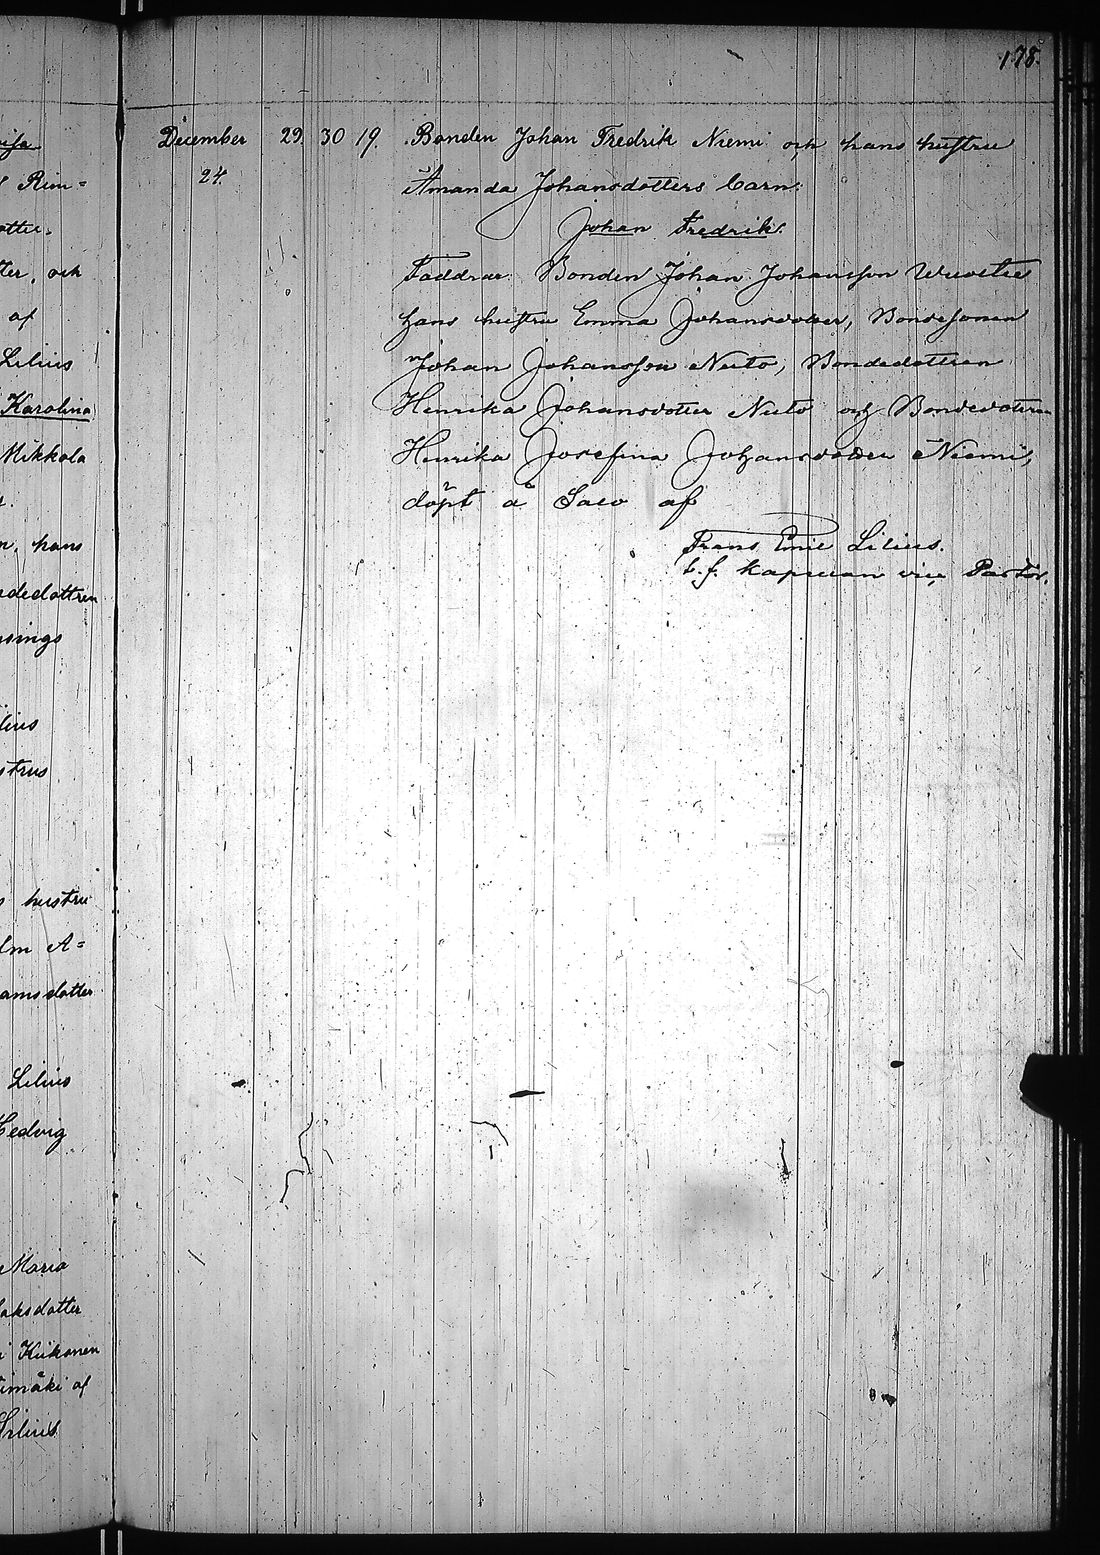 178.
December 29. 30 19. Bonden Johan Fredrik Niemi och hans hustru
24. Amanda Johansdotters barn:
Johan Fredrik.
Faddrar: Bonden Johan Johansson
hans hustru Emma Johansdotter, Bondesonen
Johan Johansson Neito, Bondedottren
Henrika Johansdotter Neito och Bondedottren
Henrika Josefina Johansdotter Niemi,
döpt å Salo af
Frans Emil Lilius.
t.f. kapellan vice Pastor.
Rim=
otter.
ter, och
af
Lilius
Karolina
Mikkola
n, hans
dedottren
sings
lius
strus
s hustru
lm A=
amsdotter
Lilius
Hedvig
Maria
aksdotter
i Kiikonen
imäki af
Lilius